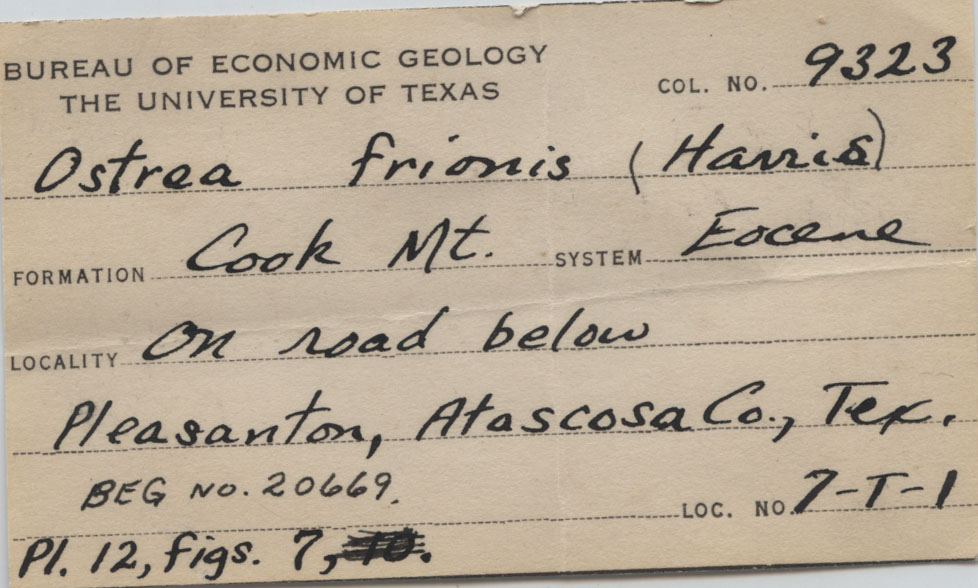 BUREAU OF ECONOMIC GEOLOGY
THE UNIVERSITY OF TEXAS
COL. NO. 9323
Ostrea frionis (Harris)
FORMATION Cook Mt. SYSTEM Eocene
LOCALITY On road below
Pleasanton, Atascosa Co., Tex.
BEG No. 20669.
LOC. NO. 7-T-1
Pl. 12, figs. 7,